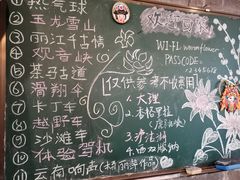 ① 热气球
② 玉龙雪山
③ 丽江千古情
④ 观音峡
⑤ 茶马古道
⑥ 滑翔伞
⑦ 卡丁车
⑧ 越野车
⑨ 沙滩车
⑩ 体验驾机
⑪ 云南响声(杨丽萍作品)
欢迎回家
WI-FI: warmflower
PASSCODE:
12345678
仅供参考不收费用
1. 大理
2. 香格里拉
3. 泸沽湖
4. 西双版纳